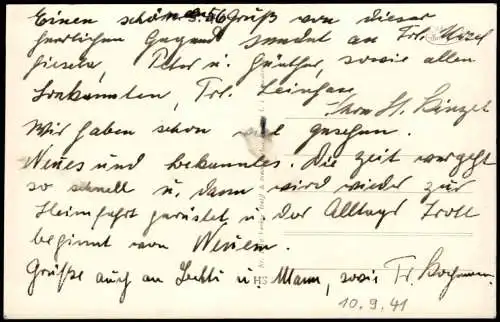 Einen schönen Gruß von dieser
herrlichen Gegend sendet an Frl.
Gisela, Peter u. Günther, sowie allen
Bekannten, Frl. Leinhase
Herrn St. Binzel
Wir haben schon viel gesehen.
Neues und bekanntes. Die Zeit vergeht
so schnell u. dann wird wieder zur
Heimfahrt gerüstet u. der Alltags Trott
beginnt von Neuem.
Grüße auch an u. Mann, sowie Fr. Bochmann.
HS
10.9.41